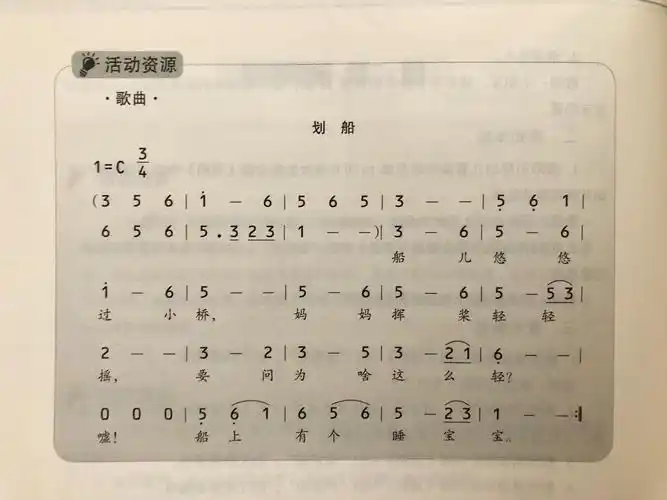 活动资源
·歌曲·
划 船
1=C 3/4
(3 5 6 | i̇ – 6 | 5 6 5 | 3 – – | 5̣ 6̣ 1 |
6 5 6 | 5 . 3 2 3 | 1 – –)| 3 – 6 | 5 – 6 |
船 儿 悠 悠
i̇ – 6 | 5 – – | 5 – 6 | 5 – 6 | 5 – 5 3 |
过 小 桥, 妈 妈 挥 桨 轻 轻
2 – – | 3 – 2 | 3 – 5 | 3 – 2 1 | 6̣ – – |
摇, 要 问 为 啥 这 么 轻?
0 0 0 | 5̣ 6̣ 1 | 6 5 6 | 5 – 2 3 | 1 – – :‖
嘘! 船 上 有 个 睡 宝 宝。